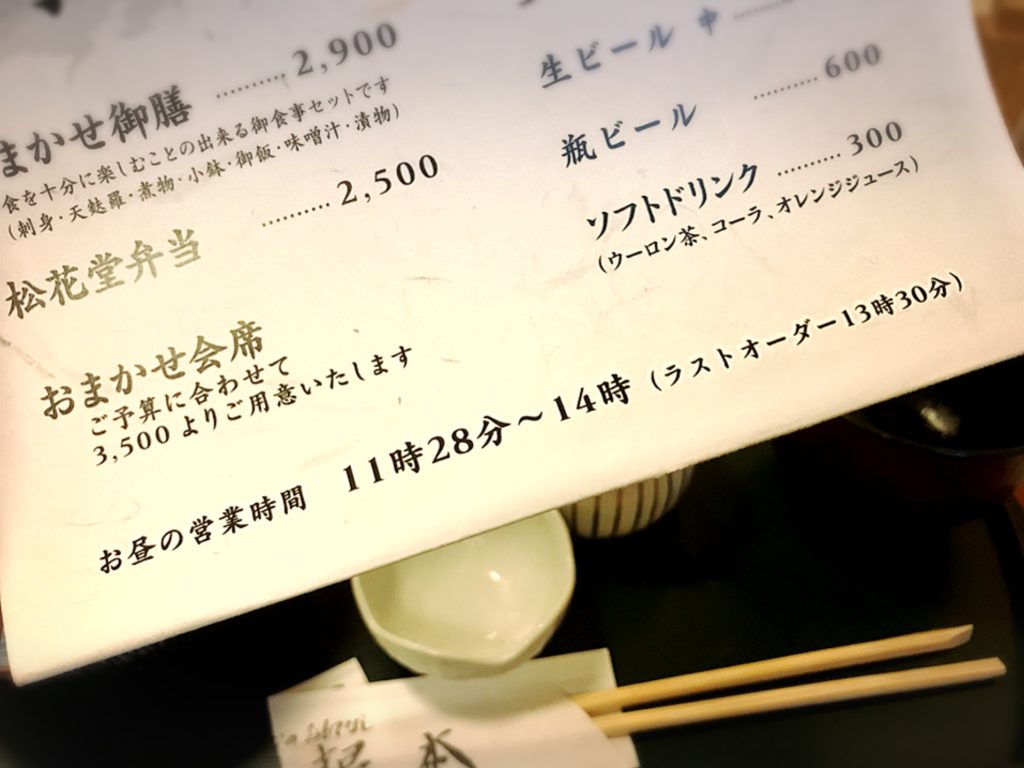 まかせ御膳 ………… 2,900
食を十分に楽しむことの出来る御食事セットです
(刺身・天麩羅・煮物・小鉢・御飯・味噌汁・漬物)
松花堂弁当 ………… 2,500
おまかせ会席
ご予算に合わせて
3,500よりご用意いたします
生ビール 中 …………
瓶ビール ………… 600
ソフトドリンク ………… 300
(ウーロン茶、コーラ、オレンジジュース)
お昼の営業時間 11時28分～14時 (ラストオーダー13時30分)